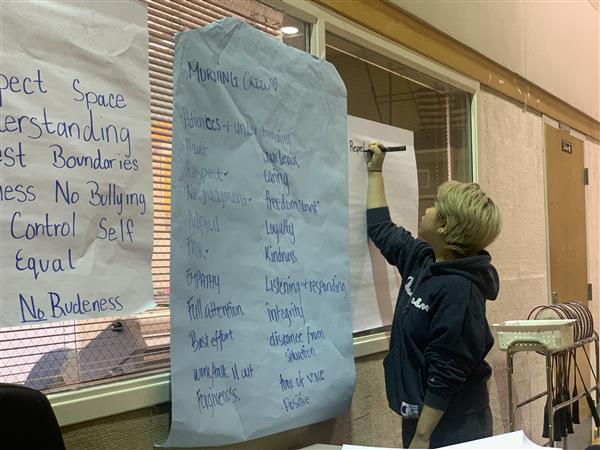 pect Space
erstanding
est Boundaries
ness No Bullying
Control Self
Equal
No Rudeness
MORNING CREW
Patiences + understanding
Respect
No judgment
Helpful
Talk
EMPATHY
Full attention
Best effort
work/talk it out
Forgiveness
caring
freedom
Loyalty
Kindness
Listening + responding
integrity
distance from
situation
tone of voice
Positive
Respec